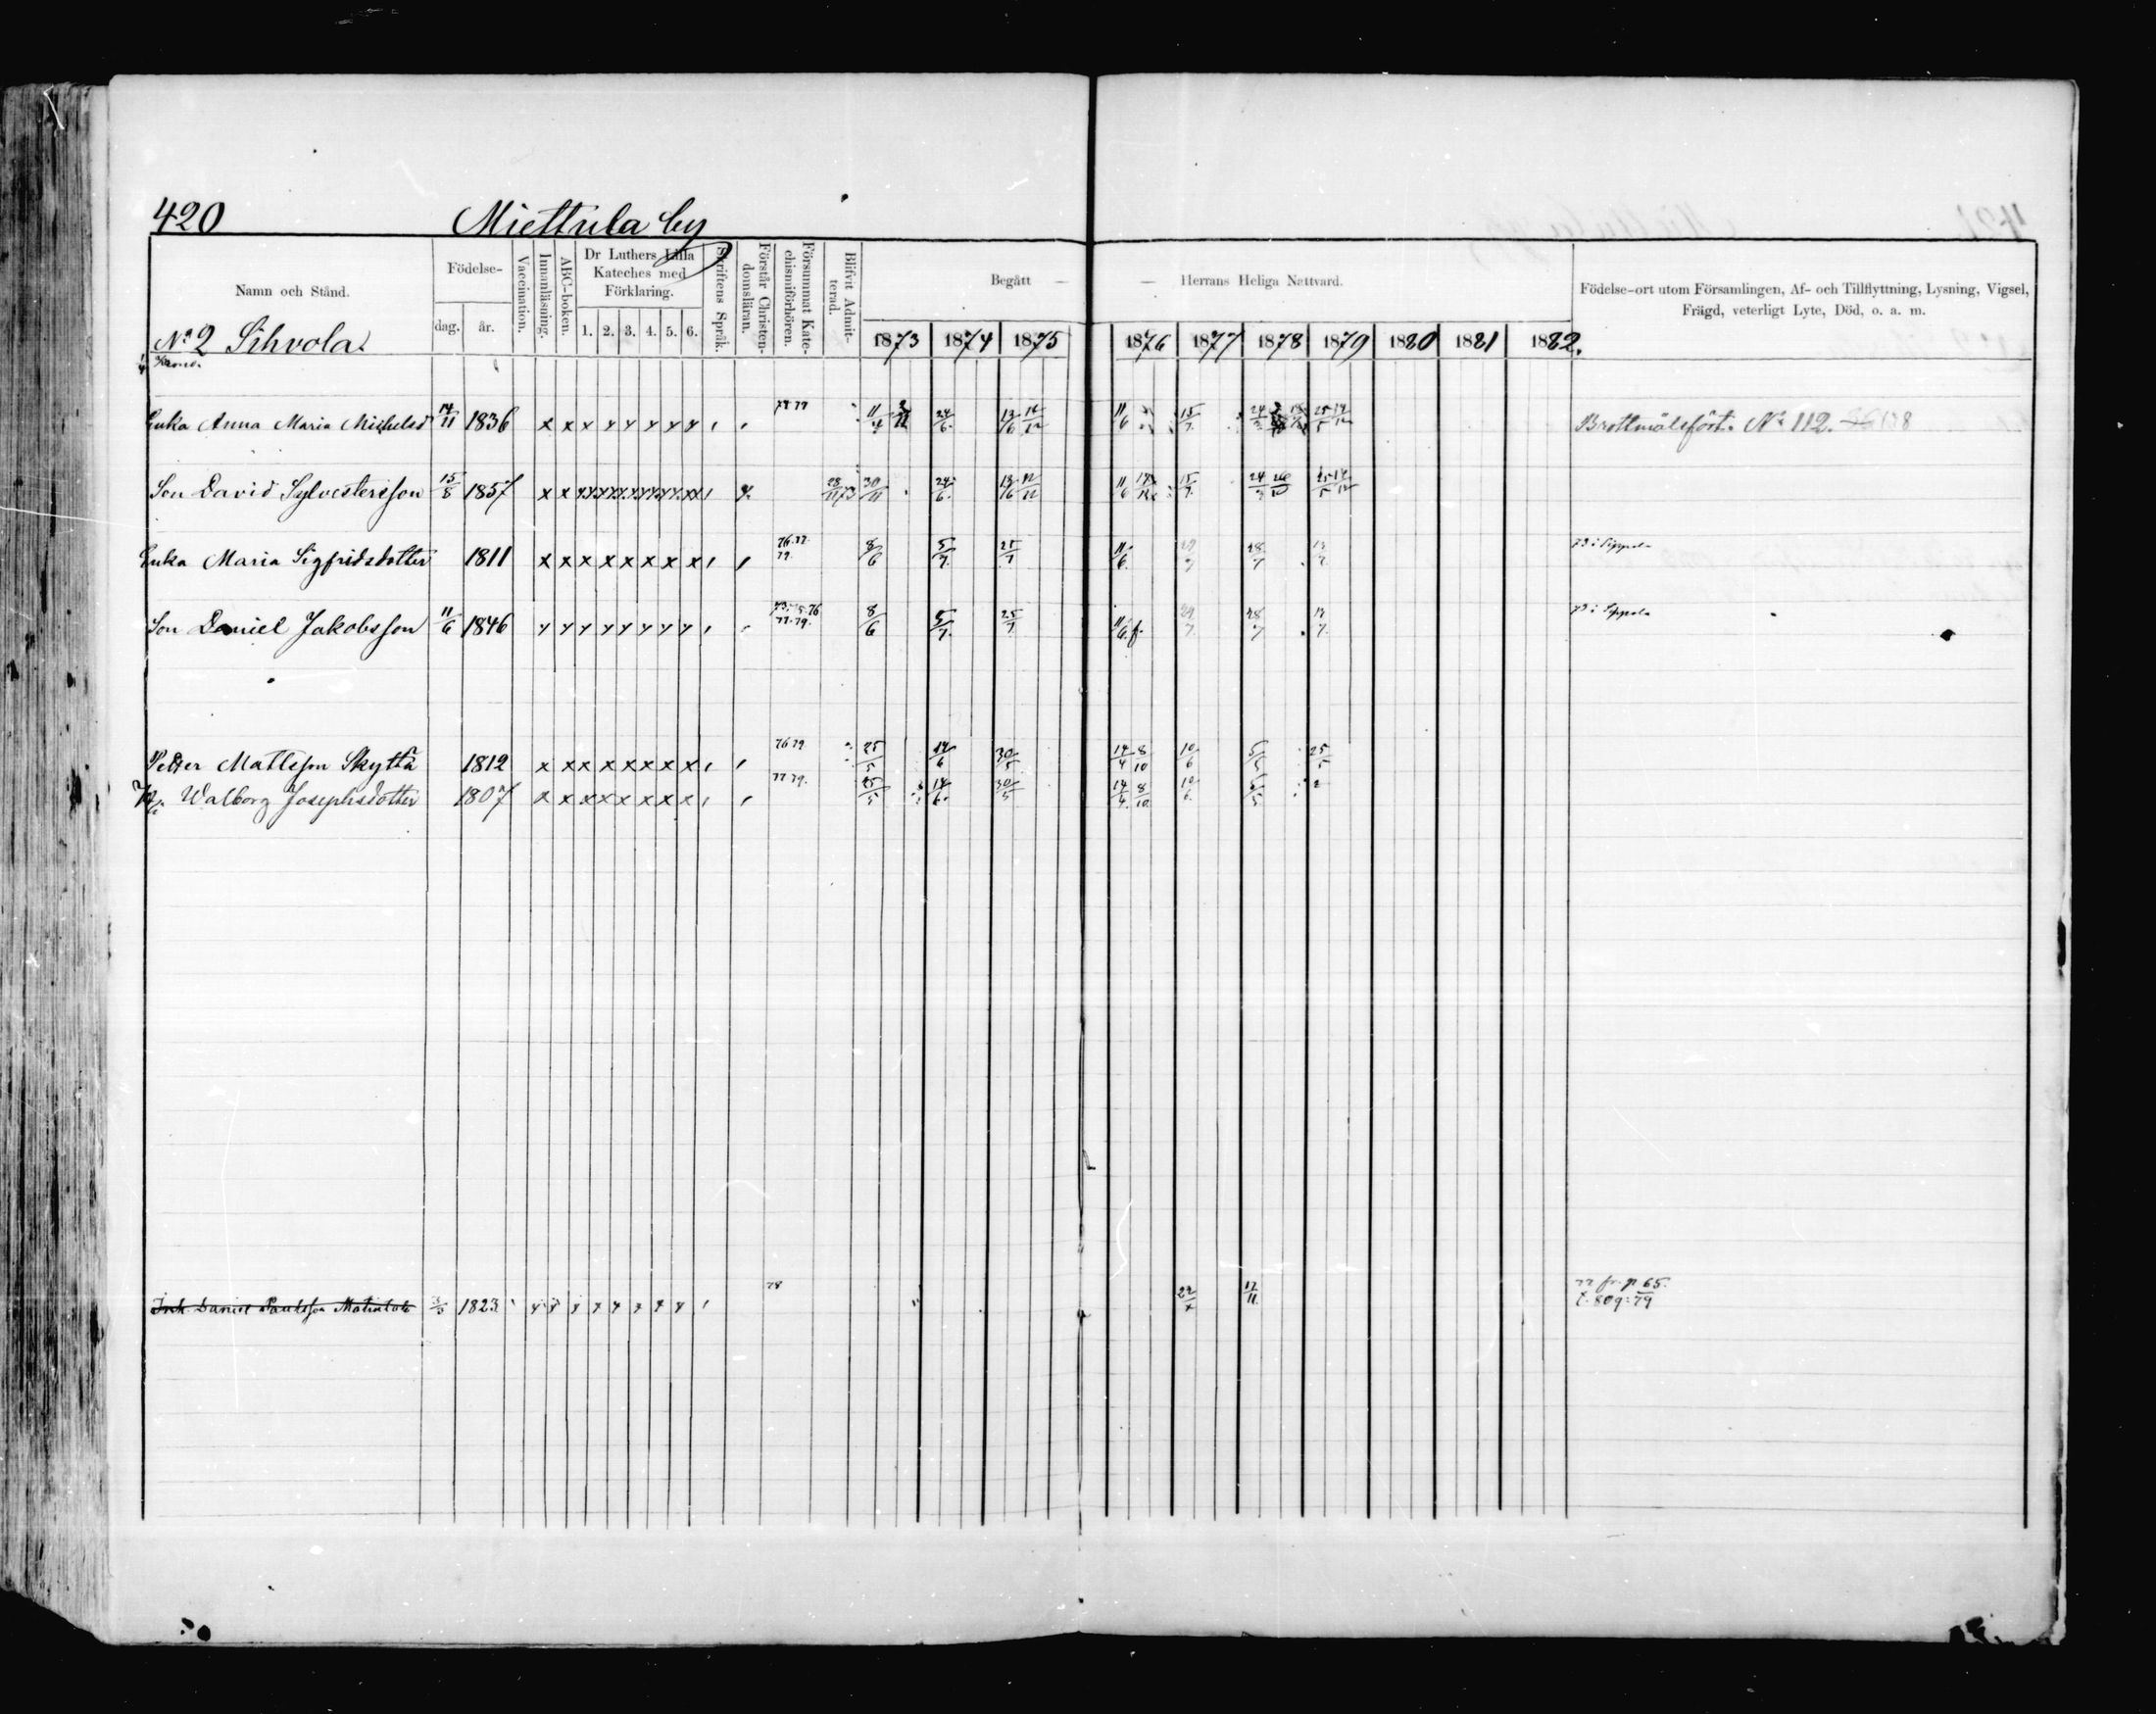 420 Miettula by
Namn och Stånd. Födelse- dag. år. Vaccination. Innanläsning. ABC-boken. Dr Luthers Lilla Kateches med Förklaring. 1. 2. 3. 4. 5. 6. Skriftens Språk. Förstår Christendomsläran. Försummat Katechismiförhören. Blifvit Admitterad. Begått — — Herrans Heliga Nattvard. Födelse-ort utom Församlingen, Af- och Tillflyttning, Lysning, Vigsel, Frägd, veterligt Lyte, Död, o. a. m.
1873 1874 1875 1876 1877 1878 1879 1880 1881 1882.
No 2 Sihvola.
Enka Anna Maria Michelsd 14/11 1836 x x x y y y y y y 11/4 24/6 13/6 12/12 11/6 15/7 25/5 14/12 Brottmålsfört. No 112.
Son David Sylvestersson 15/8 1857 x x 28/11 73 30/11 24/6 13/6 12/12 11/6 15/7 24/3 25/5 14/12
Enka Maria Sigfridsdotter 1811 x x x x x x x x 76.77. 79. 8/6 5/7 25/7 11/6 28/7 73 i Sippola
Son Daniel Jakobsson 11/6 1846 y y y y y y y y 77.79. 8/6 5/7 25/7 11/6 f. 28/7 73 i Sippola
Petter Mattsson Skyttä 1812 x x x x x x x x 76 79 25/5 14/6 30/5 14/4 8/10 10/6 5/5 25/5
Walborg Josephsdotter 1807 x x x x x x x x 77 79. 25/5 14/6 30/5 14/4 8/10 10/6 5/5
Inh. Daniel Paulsson 1823 y y y y y y y y 78 17/11 77 fr. p 65.